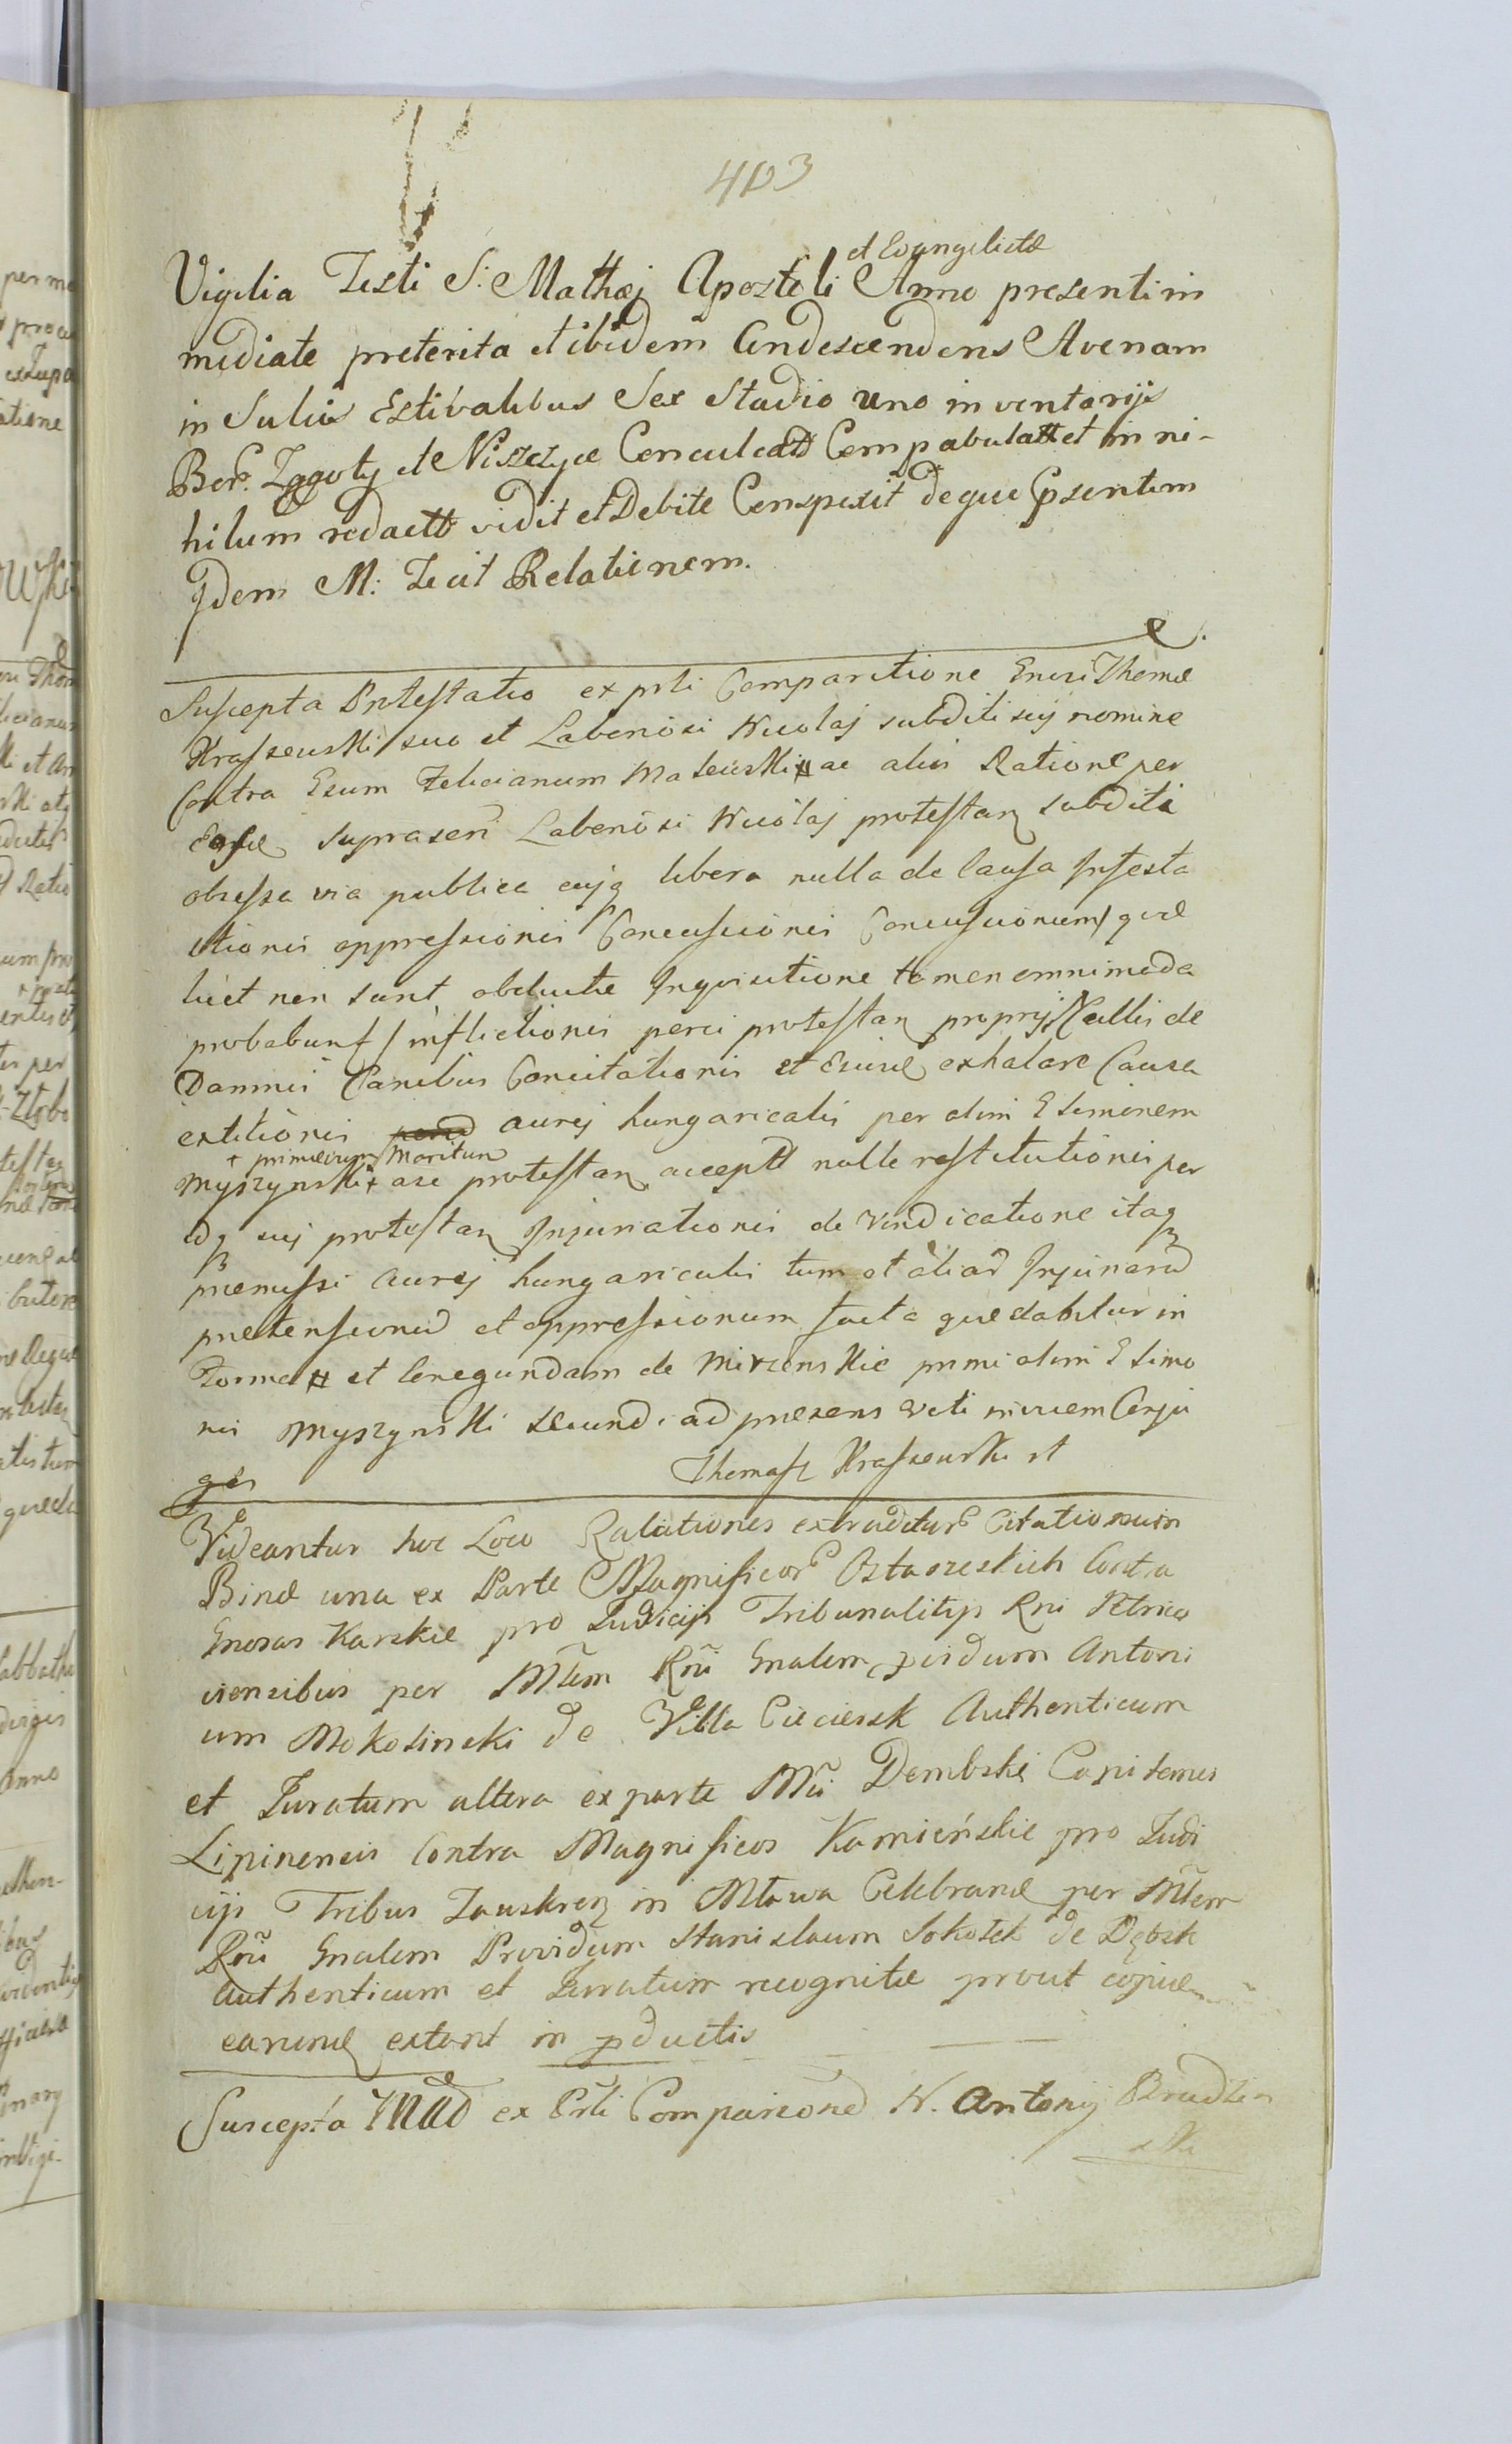 403
et Evangelistæ
Vigilia Festi S: Mathæj Apostoli Anno presenti im
mediate preterita et ibidem Condescendens Avenam
in Sulcis Estivalibus Sex Stadio uno inventarijs
Bor. Zggoty et Niszczyce Conculcatt Compabulatt et in ni-
hilum redactt vidit et Debite Conspexit deque psentem
qdem M: Fecit Relationem.
Suscepta Protestatio ex prli Comparitione Gnrsi Thomæ
Krassewski suo et Laboriosi Nicolaj subditi suj nomine
Contra Gsum Felicianum Matewski ac alios Ratione per
Eosd supraseri Laboriosi Nicolaj protestan subditi
obsessa via publica cujq libera nulla de Causa Infesta
tionis oppressionis Concussionis Concussionum quæ
licet non sunt obductæ Inquisitione tamen omnimoda
probabunt / inflictionis porci protestan proprij Nullis de
Damnis Canibus Concitationis et exhalare Causa
extitionis aurej hungaricalis per olim G Simonem
+ primævum Maritum
Myszynski+ ase protestan acceptt nulle restitutionis per
idq suj protestan Injuriationis de vindicatione itaq
præmissi Aurej hungaricalis tum et aliar Injuriaru
prætensionu et oppressionum facta quæ dabitur in
Forma et Conegundam de Mirzenskie primi olim G Simo
nis Myszynski secundi ad præsens voti invicem Conju
ges
Thomasz Krassewski st
Videantur hoc Loco Relationes extraditar Citationum
Binæ una ex Parte Magnificor Ostaszeskich Contra
Gnosas Karskie pro Judicijs Tribunalitys Rni Petrico
viensibus per Mtem Rni Gnalem pvidum Antoni
um Mokosinski de Villa Cieciersk Authenticum
et Juratum altera ex parte Mci Dembski Capitanei
Lipinensis Contra Magnificos Kamieńskie pro Judi
cijs Tribus Zauskren in Mława Celebrand per Mtem
Rni Gnalem Providum Stanislaum Sokołek de Dębsk
authenticum et Juratum recognitæ prout copiæ
earund extant in pductis
Suscepta Mad ex Prli Comparione N. Antonij Brudzin
ski